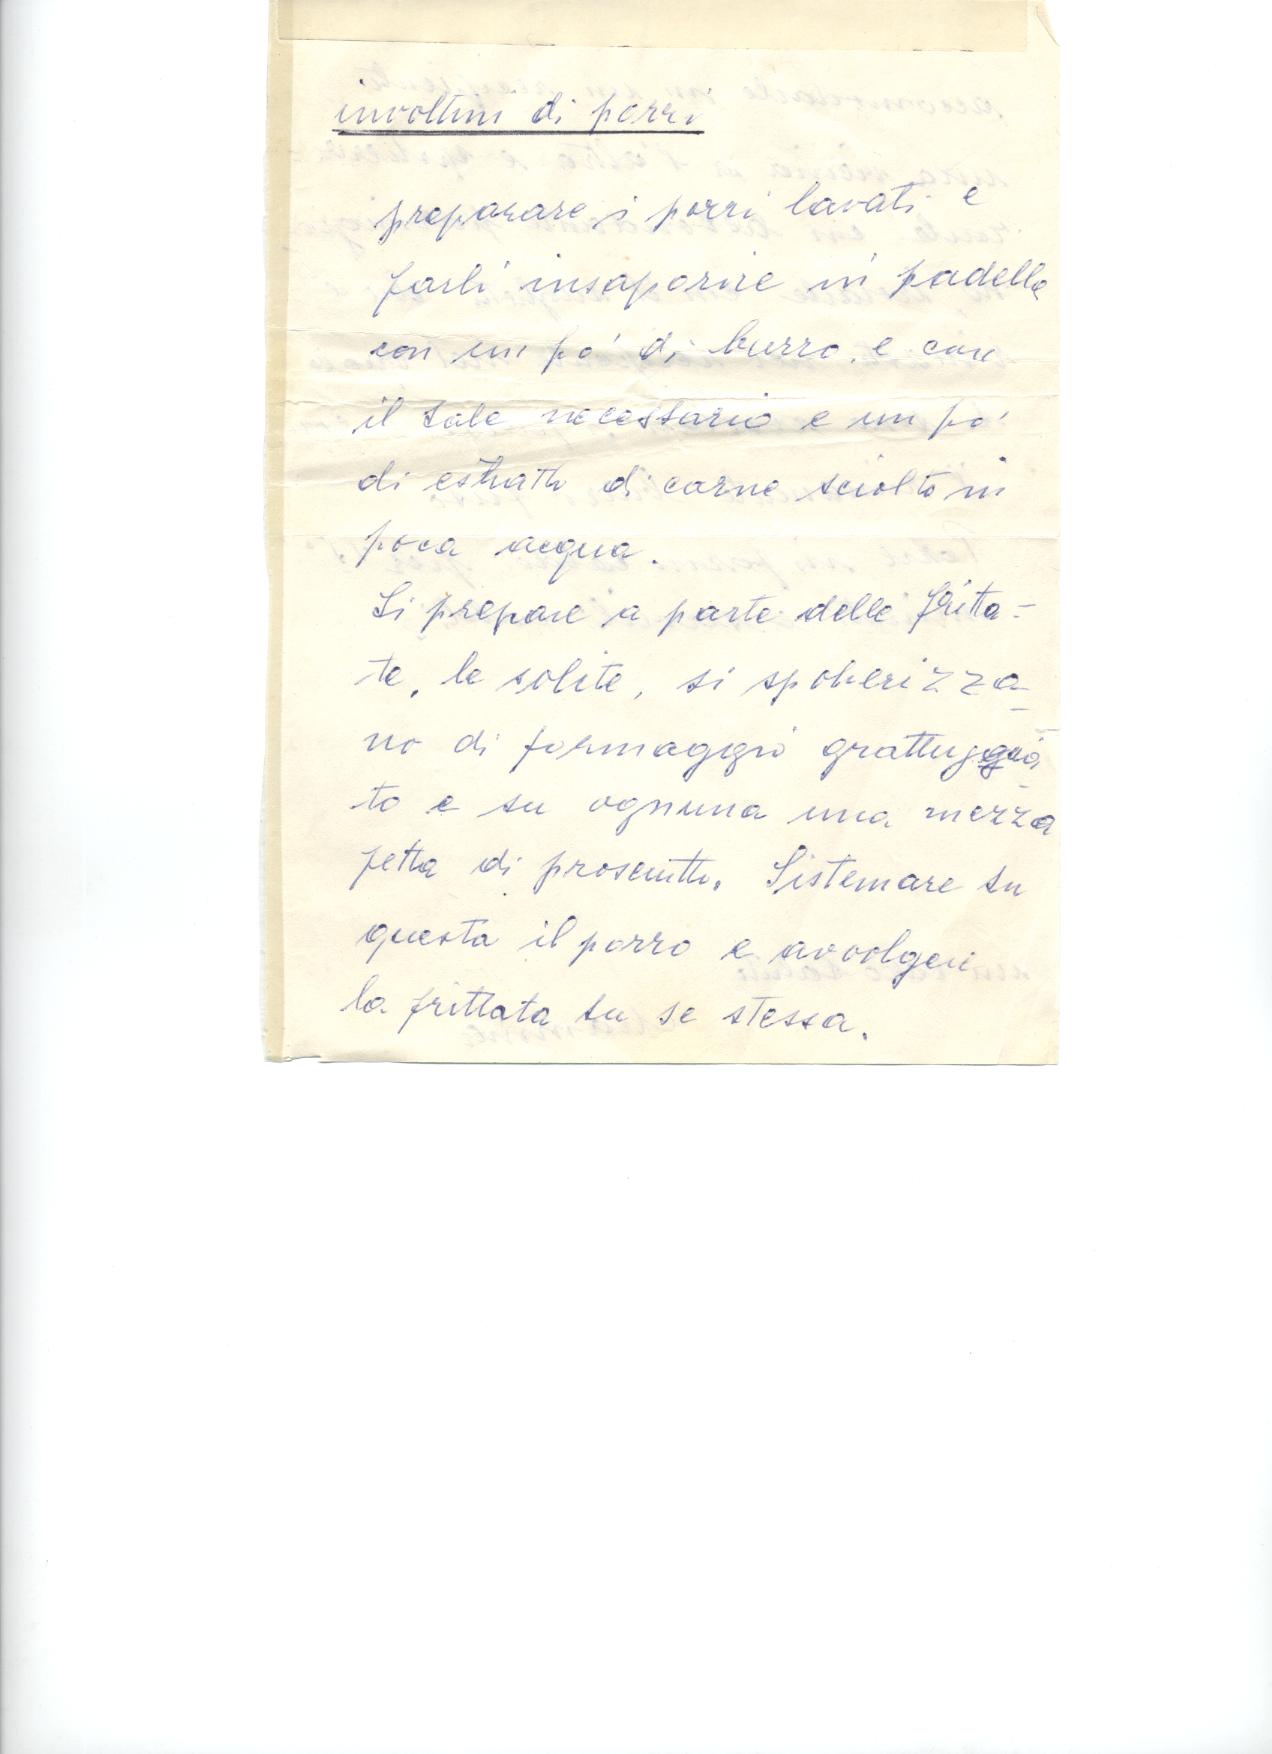 involtini di porri
preparare i porri lavati e
farli insaporire in padella
con un po' di burro e con
il sale necessario e un po'
di estratto di carne sciolto in
poca acqua.
Si prepare a parte delle fritta-
te, le solite, si spolverizza-
no di formaggio grattuggia-
to e su ognuna una mezza
fetta di prosciutto. Sistemare su
questa il porro e avvolgere
la frittata su se stessa.